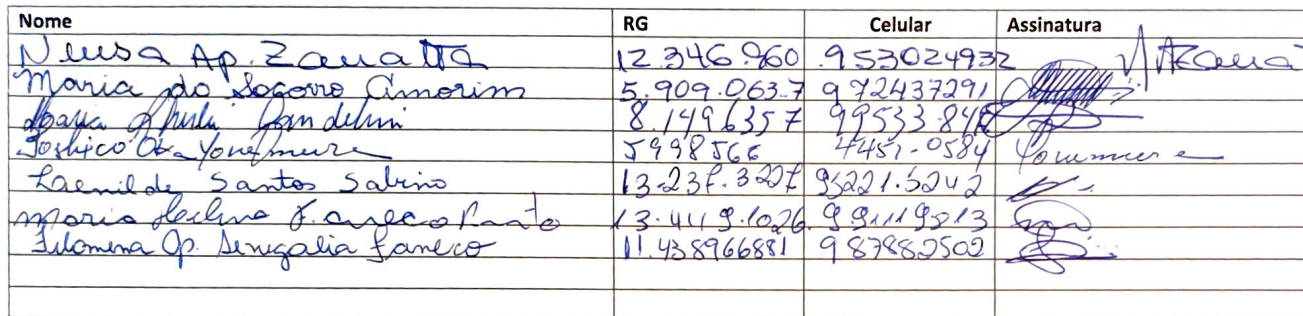 Nome RG Celular Assinatura
Neusa Ap. Zanatta 12.346.960 953024932
Maria do Socorro Amorim 5.909.063.7 972437291
Maria 8.149.635 7
Toshico Yonemura 5998566 4451-0584 Yonemura
Laenilde Santos Sabino 13.237.3207 95221.5242
Maria 13.449.1026 991119513
Filomena Ap. Senegalia Faneco 11.438966881 987882502